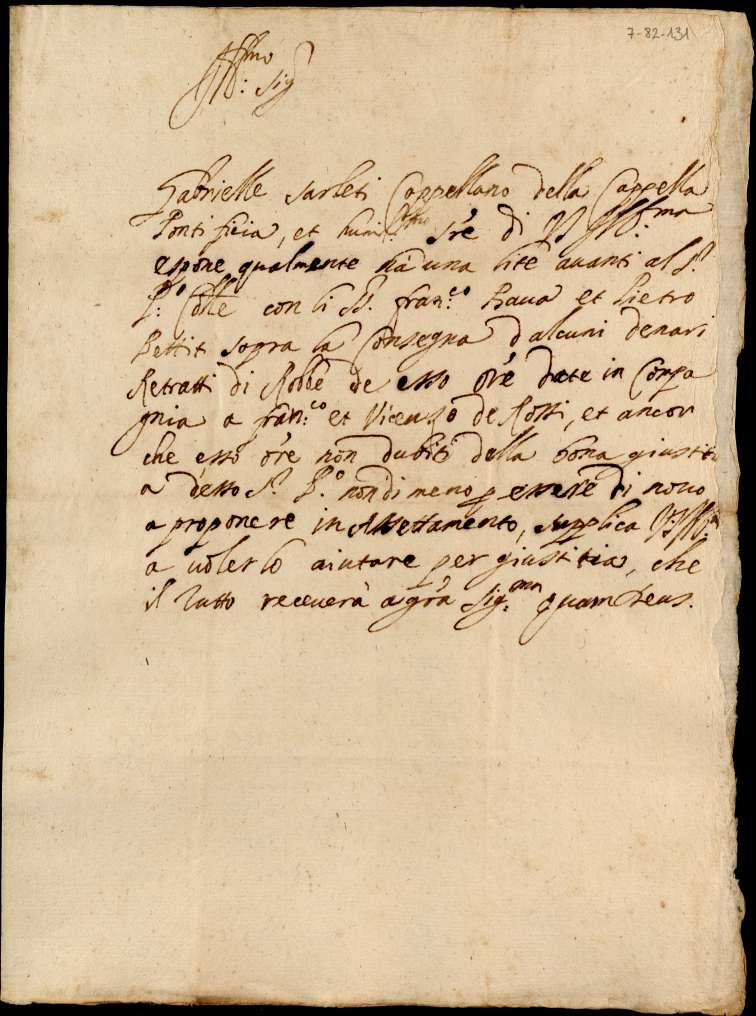 7-82-131
Ill.mo
Sig.r
Gabrielle Sarleti Cappellano della Cappella
Pontificia, et humil.mo S.re di VS Ill.ma
espone qualmente hà una lite avanti al S.r
P.o Colle con li SS. Fran.co Bava et Pietro
Pettit sopra la Consegna d'alcuni denari
Retratti di Robbe de esso ore date in Compa
gnia a fran.co et Vicenzo de Rossi, et ancor
che esso ore non dubiti della bona giustiti
a desso S.r P.o nondimeno p essere di novo
a proponere in Assettamento, supplica VS Ill.ma
a volerlo aiutare per giustitia, che
il Tutto receverà a gra Sig.ma quam Deus.